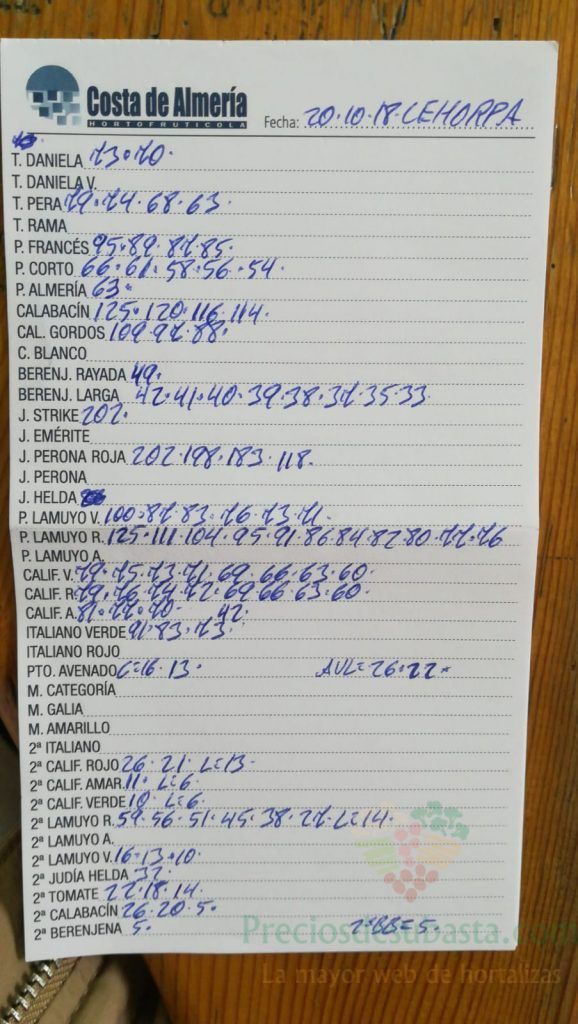 Costa de Almería
HORTOFRUTICOLA
Fecha: 20.10.18. CEHORPA
T. DANIELA 73.70.
T. DANIELA V.
T. PERA 79.74.68.63.
T. RAMA
P. FRANCÉS 95.89.87.85.
P. CORTO 66.61.58.56.54.
P. ALMERÍA 63.
CALABACÍN 125.120.116.114.
CAL. GORDOS 109.97.88.
C. BLANCO
BERENJ. RAYADA 49.
BERENJ. LARGA 42.41.40.39.38.37.35.33.
J. STRIKE 202.
J. EMÉRITE
J. PERONA ROJA 202.198.183.118.
J. PERONA
J. HELDA
P. LAMUYO V. 100.87.83.76.73.71.
P. LAMUYO R. 125.111.104.95.91.86.84.82.80.77.76
P. LAMUYO A.
CALIF. V. 79.75.73.71.69.66.63.60.
CALIF. R. 79.76.74.72.69.66.63.60.
CALIF. A. 81.77.70. 42.
ITALIANO VERDE 91.83.73.
ITALIANO ROJO
PTO. AVENADO C=16.13. AVL=26.22.
M. CATEGORÍA
M. GALIA
M. AMARILLO
2ª ITALIANO
2ª CALIF. ROJO 26.21.L=13.
2ª CALIF. AMAR. 11. L=6.
2ª CALIF. VERDE 10. L=6.
2ª LAMUYO R. 59.56.51.45.38.27.L=14.
2ª LAMUYO A.
2ª LAMUYO V. 16.13.10.
2ª JUDÍA HELDA 37.
2ª TOMATE 22.18.14.
2ª CALABACÍN 26.20.5.
2ª BERENJENA 5. 2ªBB=5.
Preciosdesubasta.com
La mayor web de hortalizas